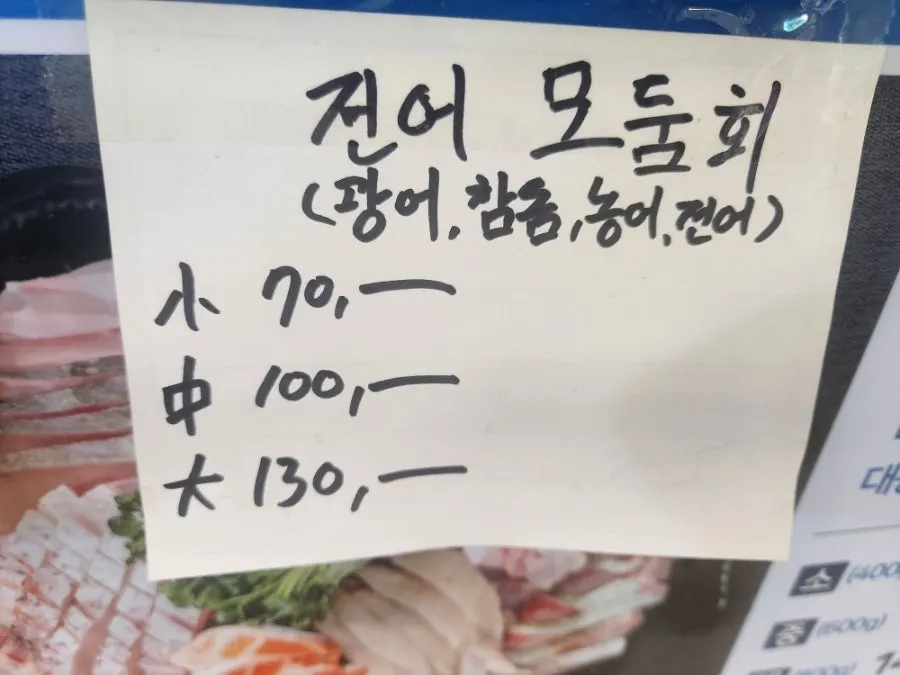 전어 모둠회
(광어, 참돔, 농어, 전어)
小 70,一
中 100,一
大 130,一
소 (400g
중 (600g)